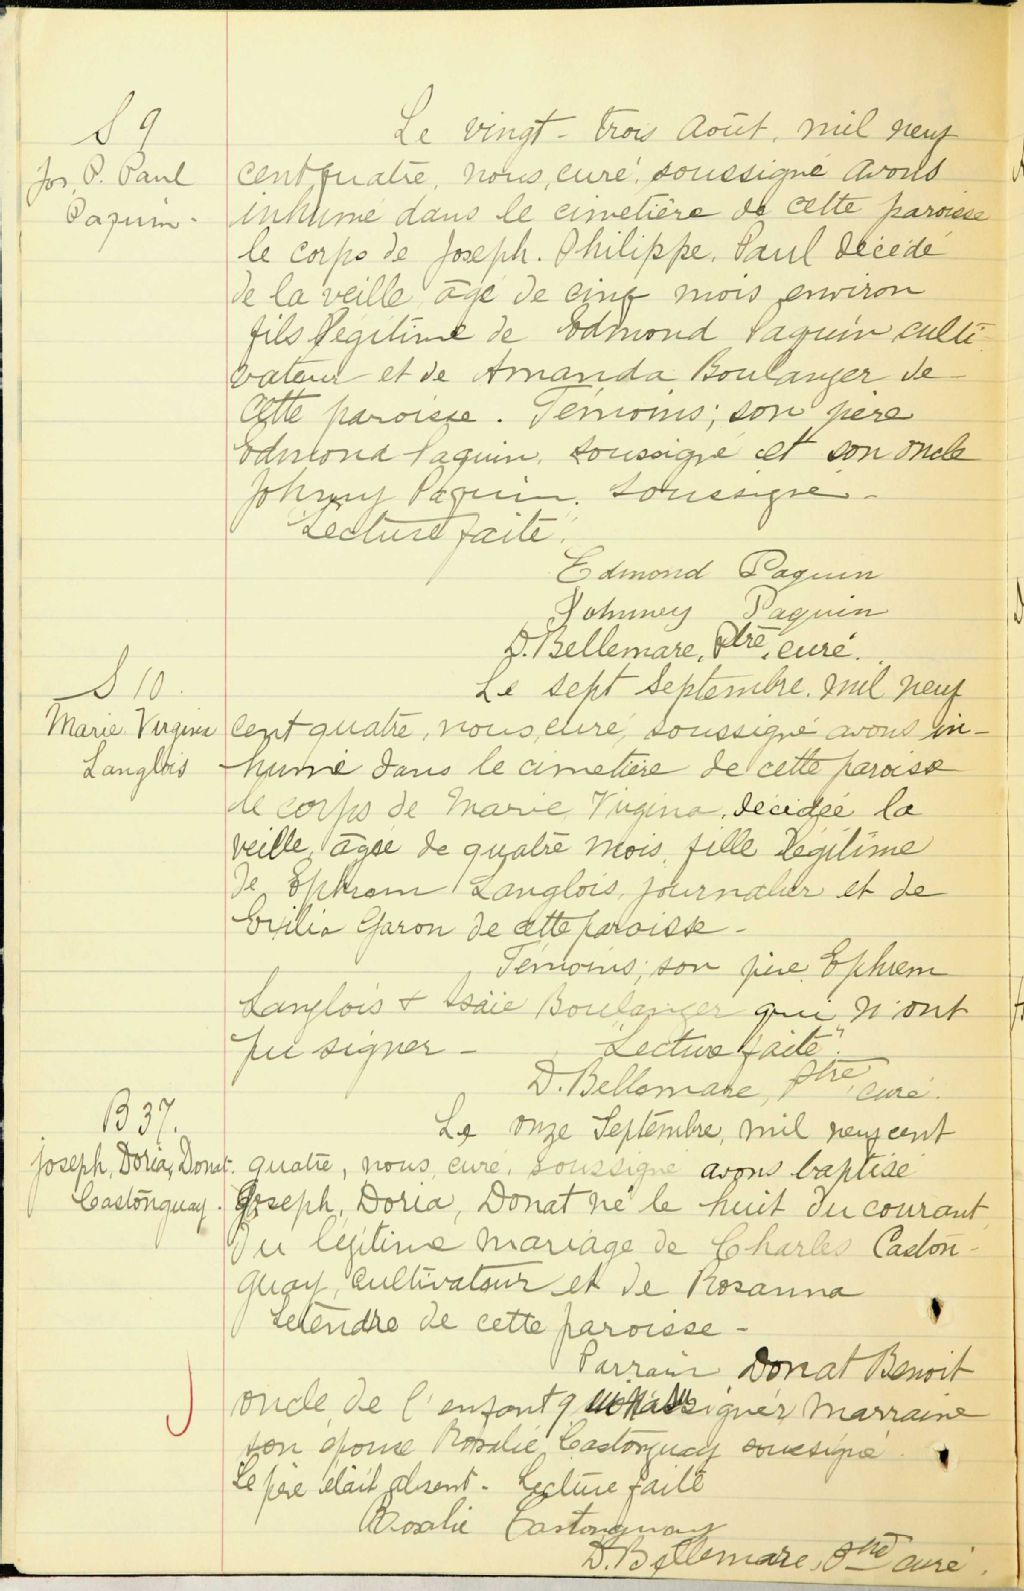 S 9
Jos. P. Paul
Paquin -
Le vingt - trois Août, mil neuf
cent quatre, nous, curé, soussigné avons
inhumé dans le cimetière de cette paroisse
le corps de Joseph. Philippe. Paul décédé
de la veille, âgé de cinq mois environ
fils légitime de Edmond Paquin culti-
vateur et de Amanda Boulanger de
cette paroisse. Témoins; son père
Edmond Paquin, soussigné et son oncle
Johnny Paquin, soussigné -
"Lecture faite".
Edmond Paquin
Johnney Paquin
D. Bellemare, Ptre, curé.
S 10.
Marie Virginia
Langlois
Le sept Septembre, mil neuf
cent quatre, nous, curé, soussigné avons in-
humé dans le cimetière de cette paroisse
le corps de Marie Virgina, décédée la
veille, âgée de quatre mois, fille légitime
de Ephrem Langlois, journalier et de
Garon de cette paroisse -
Témoins; son père Ephrem
Langlois & Isaïe Boulanger qui n'ont
pu signer - "Lecture faite".
D. Bellemare, Ptre, curé.
B 37.
Joseph, Doria, Donat
Castonguay.
Le onze Septembre, mil neuf cent
quatre, nous, curé, soussigné avons baptisé
Joseph, Doria, Donat né le huit du courant,
du légitime mariage de Charles Caston-
guay, cultivateur et de Rosanna
Letendre de cette paroisse -
Parrain Donat Benoit
oncle de l'enfant signer, Marraine
son épouse Rosalie Castonguay soussigné.
Le père était absent. Lecture faite
Rosalie Castonguay
D. Bellemare, Ptre curé.